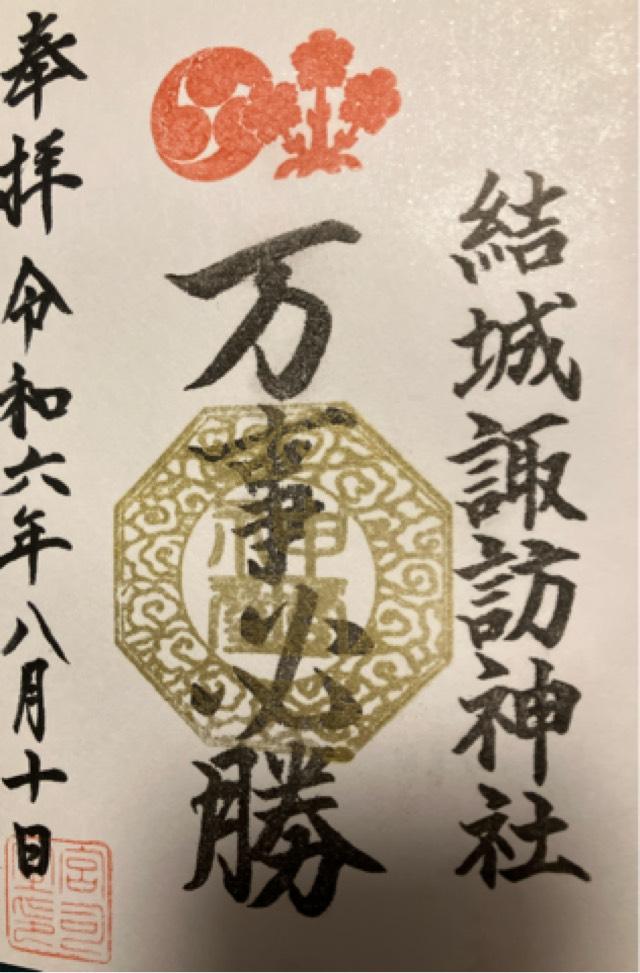 結城諏訪神社
万事必勝
神璽
奉拝 令和六年八月十日